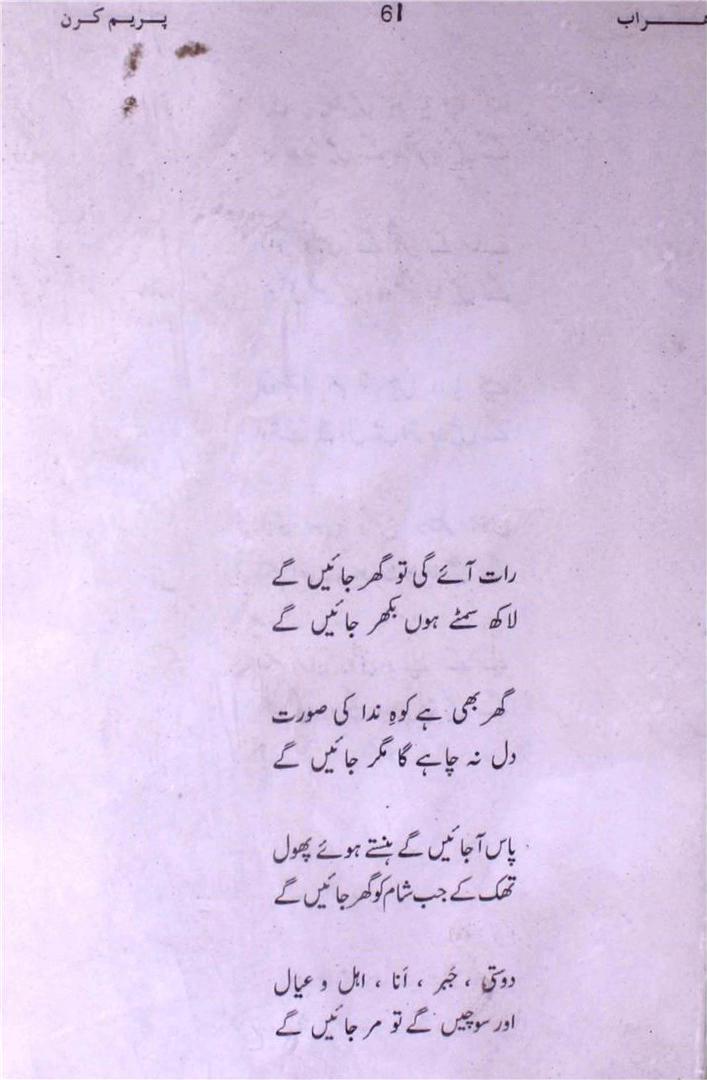 پریم کرن 61 ـراب
رات آئے گی تو گھر جائیں گے
لاکھ سمٹے ہوں بکھر جائیں گے
گھر بھی ہے کوہِ ندا کی صورت
دل نہ چاہے گا مگر جائیں گے
پاس آ جائیں گے ہنستے ہوئے پھول
تھک کے جب شام کو گھر جائیں گے
دوستی ، جَبر ، اَنا ، اہل و عیال
اور سوچیں گے تو مر جائیں گے